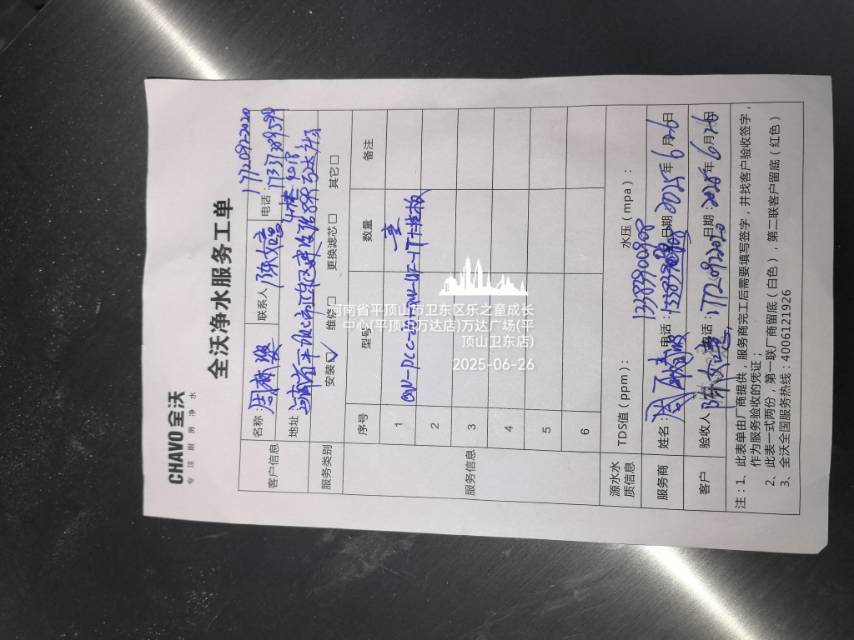 CHAVO 全沃
专注厨房净水
全沃净水服务工单
客户信息 名称: 联系人 电话: 17720922020
地址
服务类别 安装☑ 维修□ 更换滤芯□ 其它□
服务信息 序号 型号 数量 备注
1
2
3
4
5
6
源水水质信息 TDS值(ppm): 水压(mpa):
服务商 姓名: 电话: 日期: 2025年6月26日
客户 验收人 电话: 17720922020 日期: 2025年6月26日
注:1、此表单由厂商提供,服务商完工后需要填写签字,并找客户验收签字,
作为服务验收的凭证;
2、此表一式两份,第一联厂商留底(白色),第二联客户留底(红色)
3、全沃全国服务热线:4006121926
河南省平顶山市卫东区乐之童成长
中心(平顶山万达店)万达广场(平
顶山卫东店)
2025-06-26